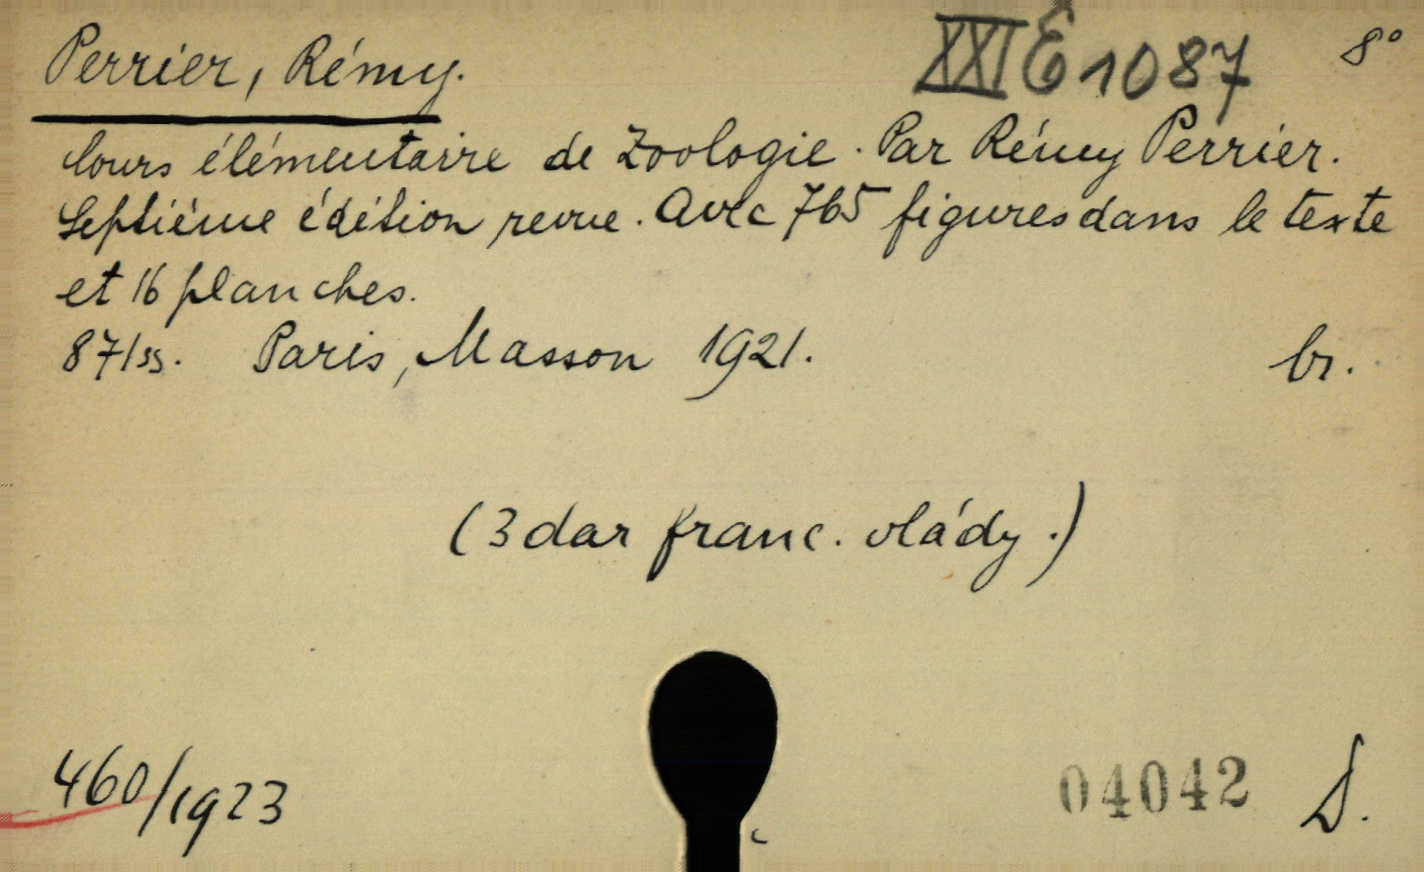 Perrier, Rémy. XXI Ê 1087 8°
Cours élémentaire de Zoologie. Par Rémy Perrier.
Septiéme édition revue. Avec 765 figures dans le texte
et 16 planches.
87/33. Paris, Masson 1921. br.
(3 dar franc. vlády.)
460/1923 04042 D.